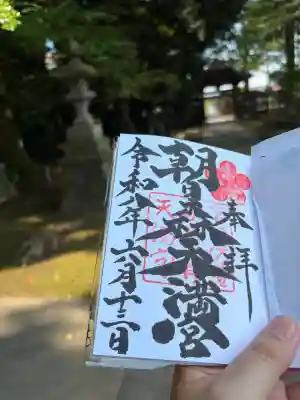 奉拝
朝日森天満宮
令和八年六月十三日